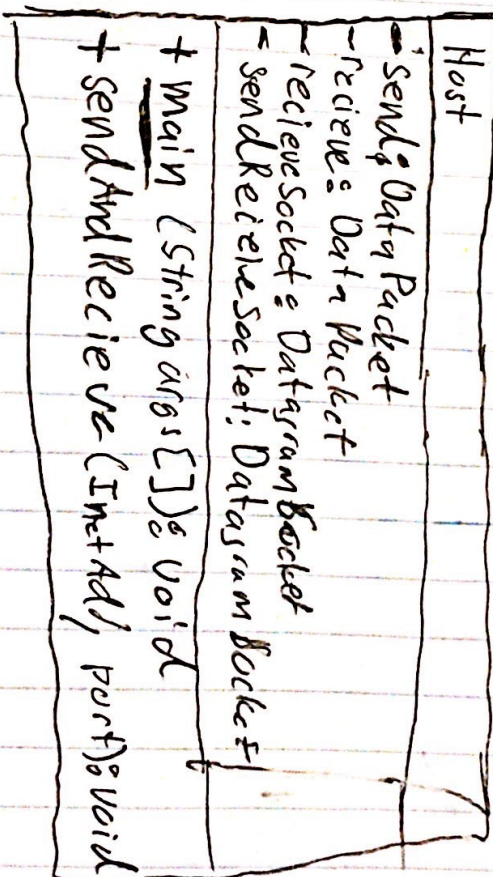 Host
- send: DataPacket
- recieve: Data Packet
- recieveSocket: DatagramSocket
- sendRecieveSocket: DatagramSocket
+ main (String args[]): void
+ sendAndRecieve (InetAd, port): void